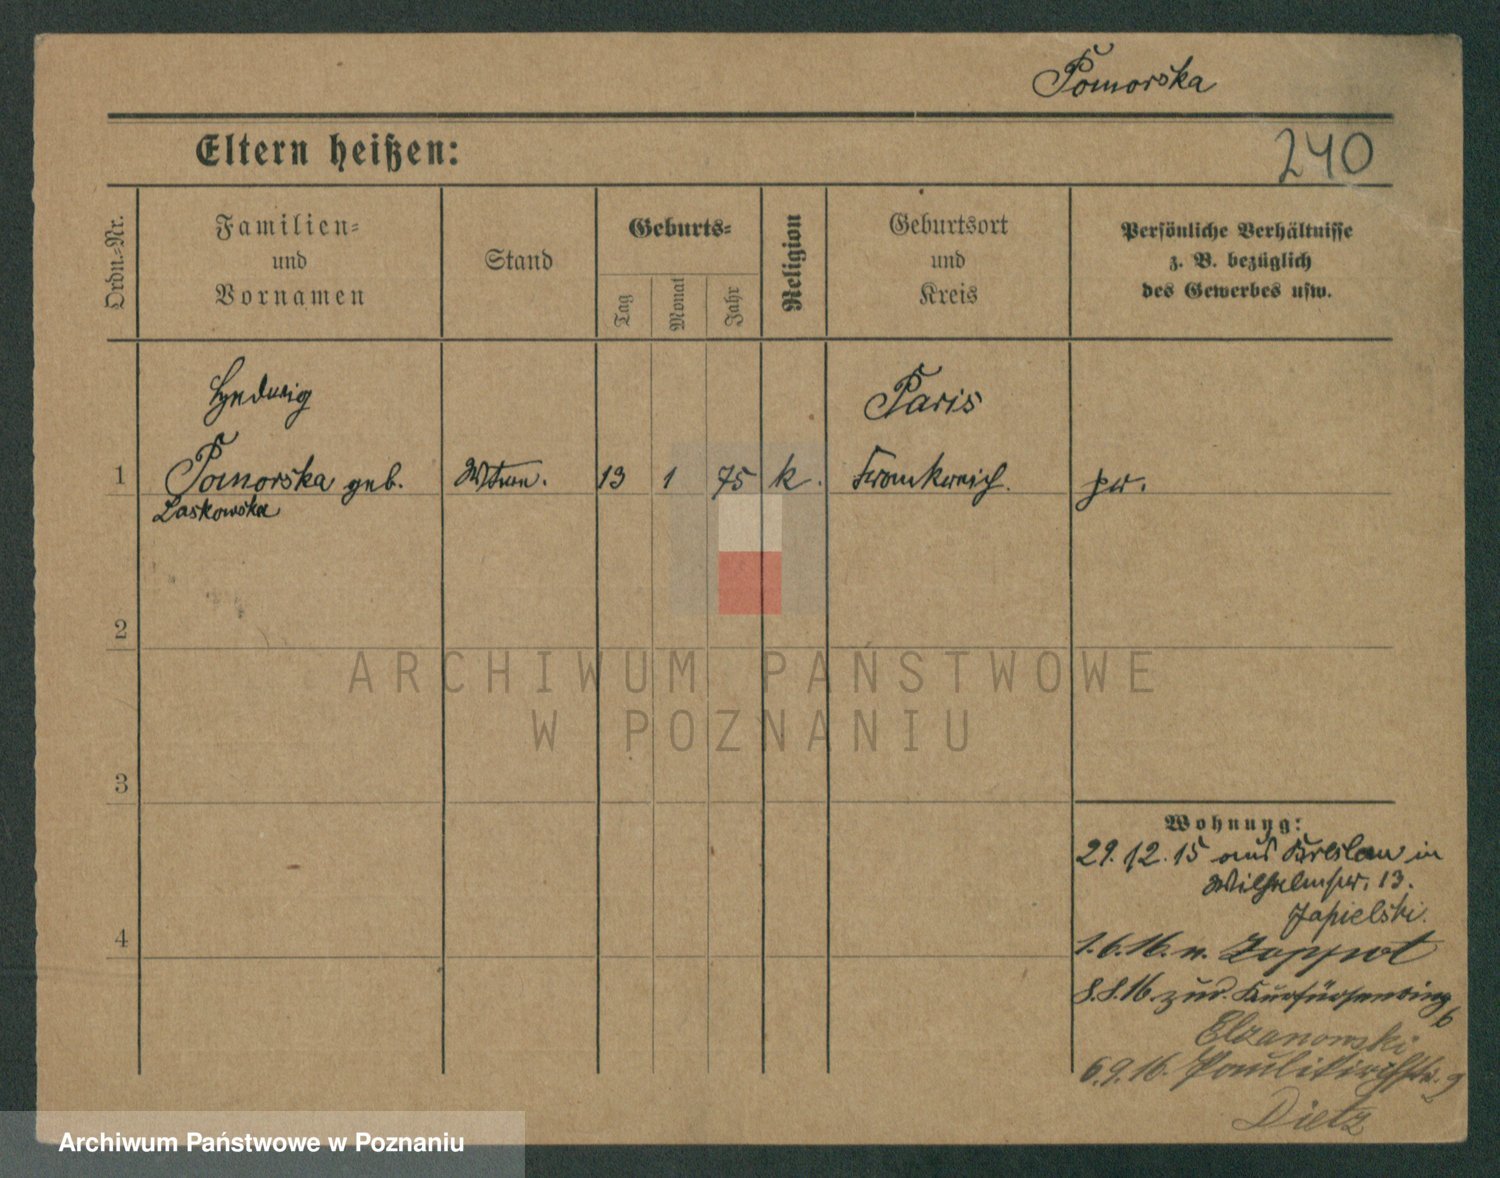 Pomorska
Eltern heißen:
240
Ordn.=Nr.
Familien=
und
Vornamen
Stand
Geburts=
Tag
Monat
Jahr
Religion
Geburtsort
und
Kreis
Persönliche Verhältnisse
z. B. bezüglich
des Gewerbes usw.
Hedwig
Paris
1 Pomorska geb. Wtwe. 13 1 75 k. Frankreich. pr.
Laskowska
2
3
4
ARCHIWUM PAŃSTWOWE
W POZNANIU
Wohnung:
29.12.15 aus Breslau in
Wilhelmstr. 13.
1.6.16. n. Zoppot
8.8.16 zur. Kurfürstenring 6
Elzanowski
6.9.16. Paulikirchstr. 9
Dietz
Archiwum Państwowe w Poznaniu